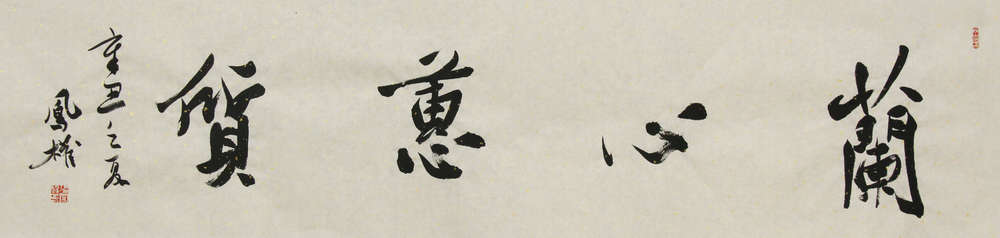 蘭心蕙質
辛丑之夏
鳳雄